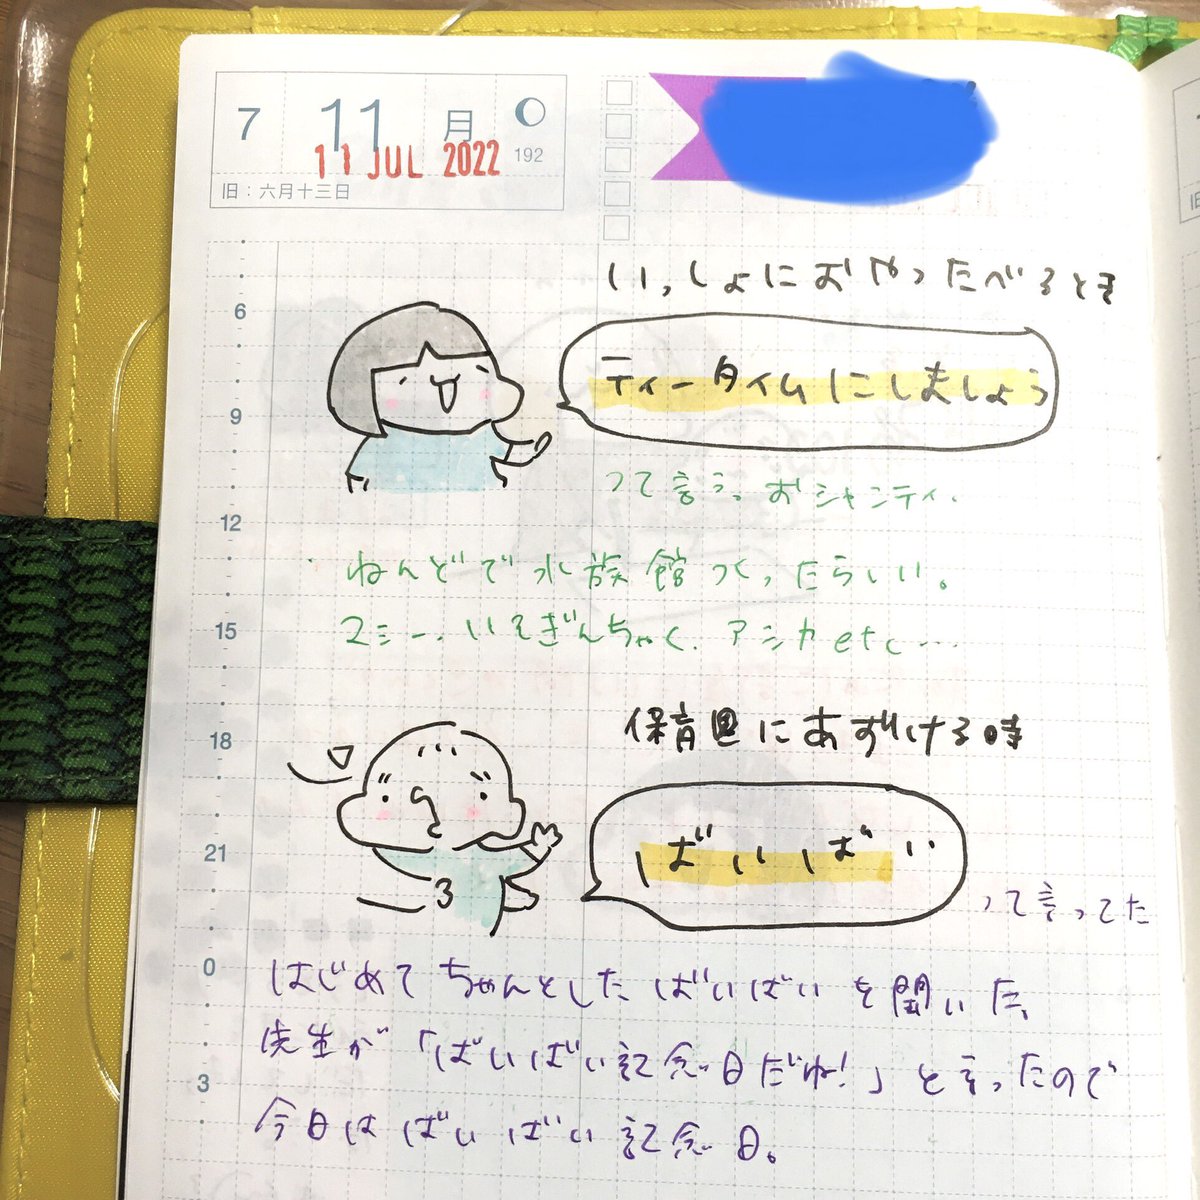 7 11 月
11 JUL 2022 192
旧：六月十三日
いっしょにおやつたべるとき
6
ティータイムにしましょう
9
って言う。おシャンティ.
12
ねんどで水族館つくったらしい。
15
マミー、いそぎんちゃく、アシカetc…
18
保育園にあずける時
21
ばいばい
って言ってた
0
はじめてちゃんとしたばいばいを聞いた、
先生が「ばいばい記念日だね!」と言ったので
3
今日はばいばい記念日。